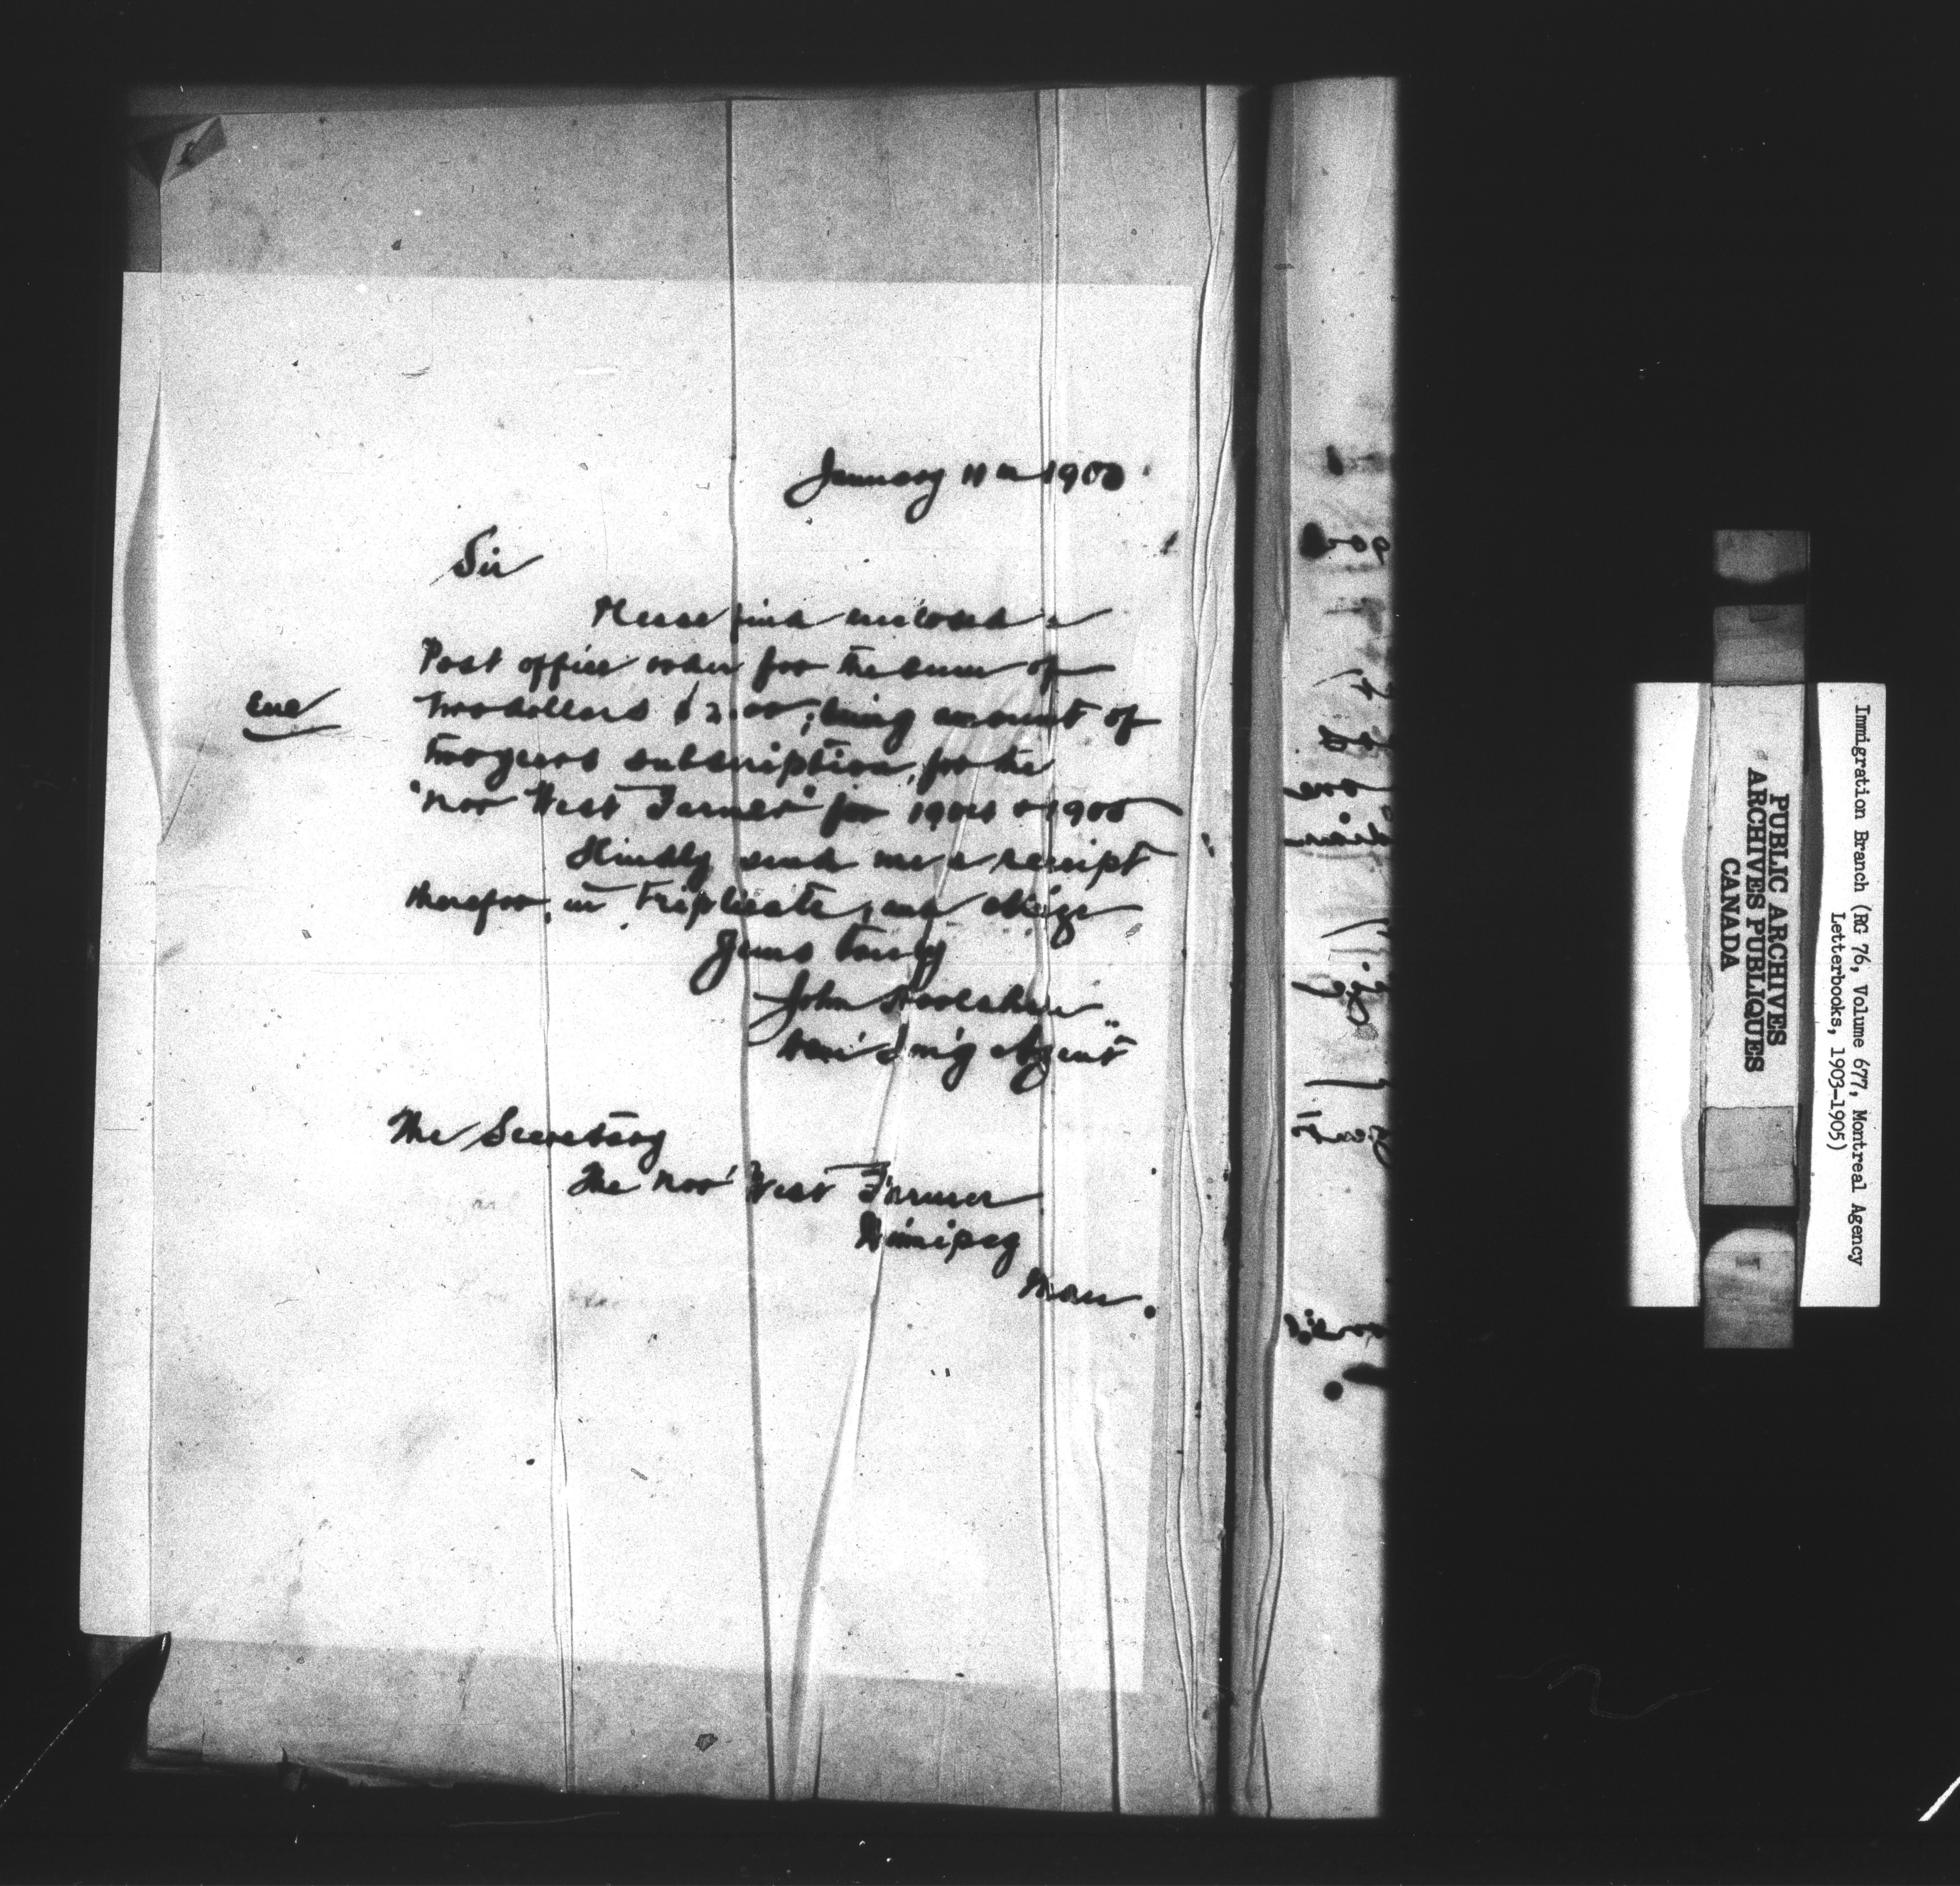 January 11th 190
Sir
Please find enclosed a
Post office order for the sum of
Encl
Two dollars $2.00, being amount of
Two years subscription, for the
"Nor West Farmer" for 1904 & 1905
Kindly send me a receipt
therefor, in triplicate, and oblige
Yours truly
John Hoolahan
Dom' Im'g Agent"
The Secretary
The Nor' West Farmer
Winnipeg
Man.
Immigration Branch (RG 76, Volume 677, Montreal Agency
Letterbooks, 1903-1905)
PUBLIC ARCHIVES
ARCHIVES PUBLIQUES
CANADA